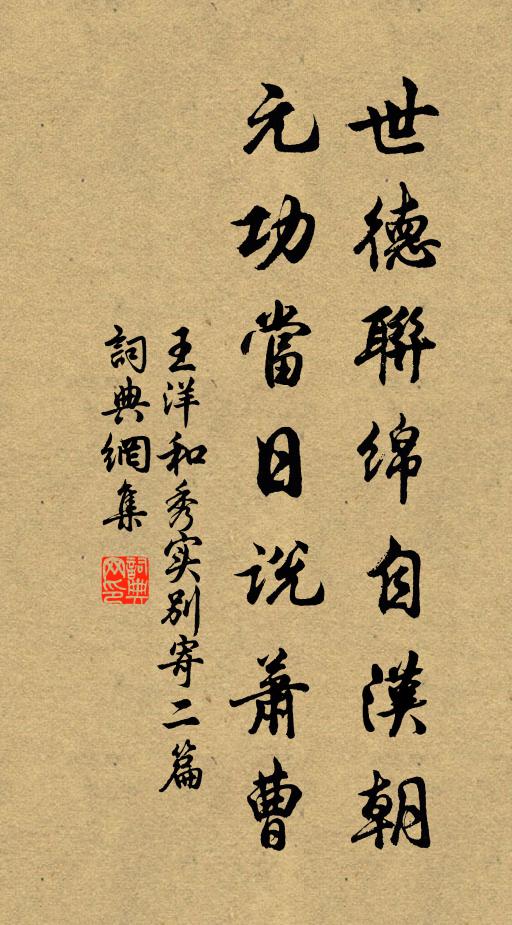 世德聯绵自漢朝
元功當日説蕭曹
王洋和秀实别寄二篇
詞典網集
詞典网印